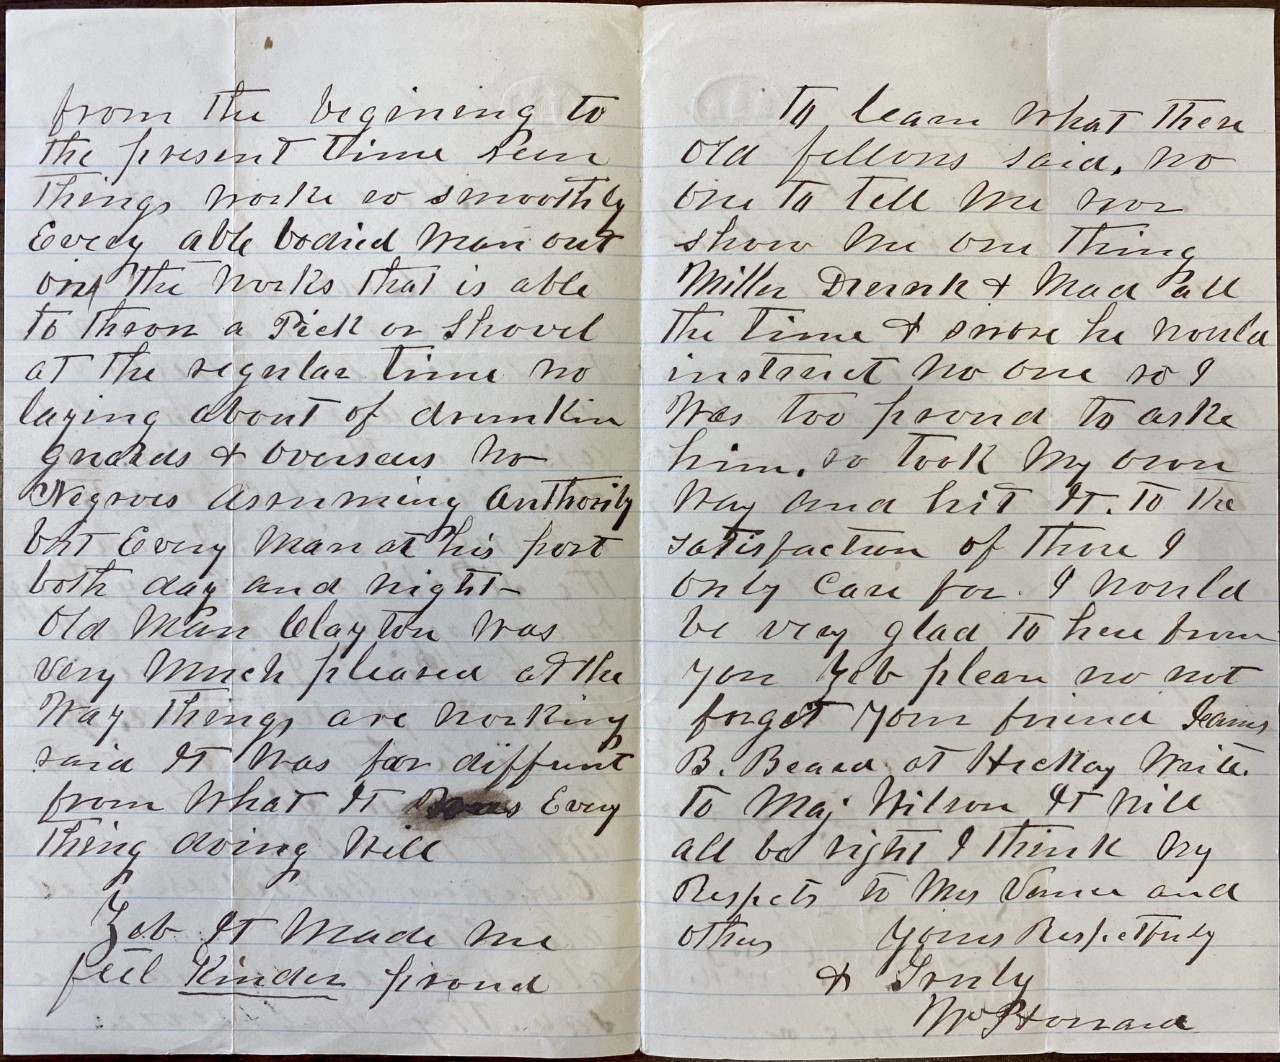 from the begining to
the present time seen
things worke so smoothly
Every able bodied man out
on the works that is able
to throw a Pick or Shovel
at the regular time no
laying about of drunkin
guards & overseers no
Negroes assuming Authority
but Every man at his post
both day and night-
Old Man Clayton was
very much pleased at the
way things are working
said It was far diffrent
from what It was Every
thing doing well
Zeb It made me
feel Kinder proud
to learn what these
old fellows said. no
one to tell me nor
show me one thing
Miller Drunk & Mad all
the time & swore he would
instruct no one so I
was too proud to aske
him. so took my own
way and hit It. to the
satisfaction of those I
only care for. I would
be very glad to here from
you Zeb please do not
forget your friend Jeams
B. Beard at Hickoy write
to Maj Wilson It will
all be right I think my
Respects to Mrs Vance and
others Yours Respectfuly
& Truly
Wm P Howard